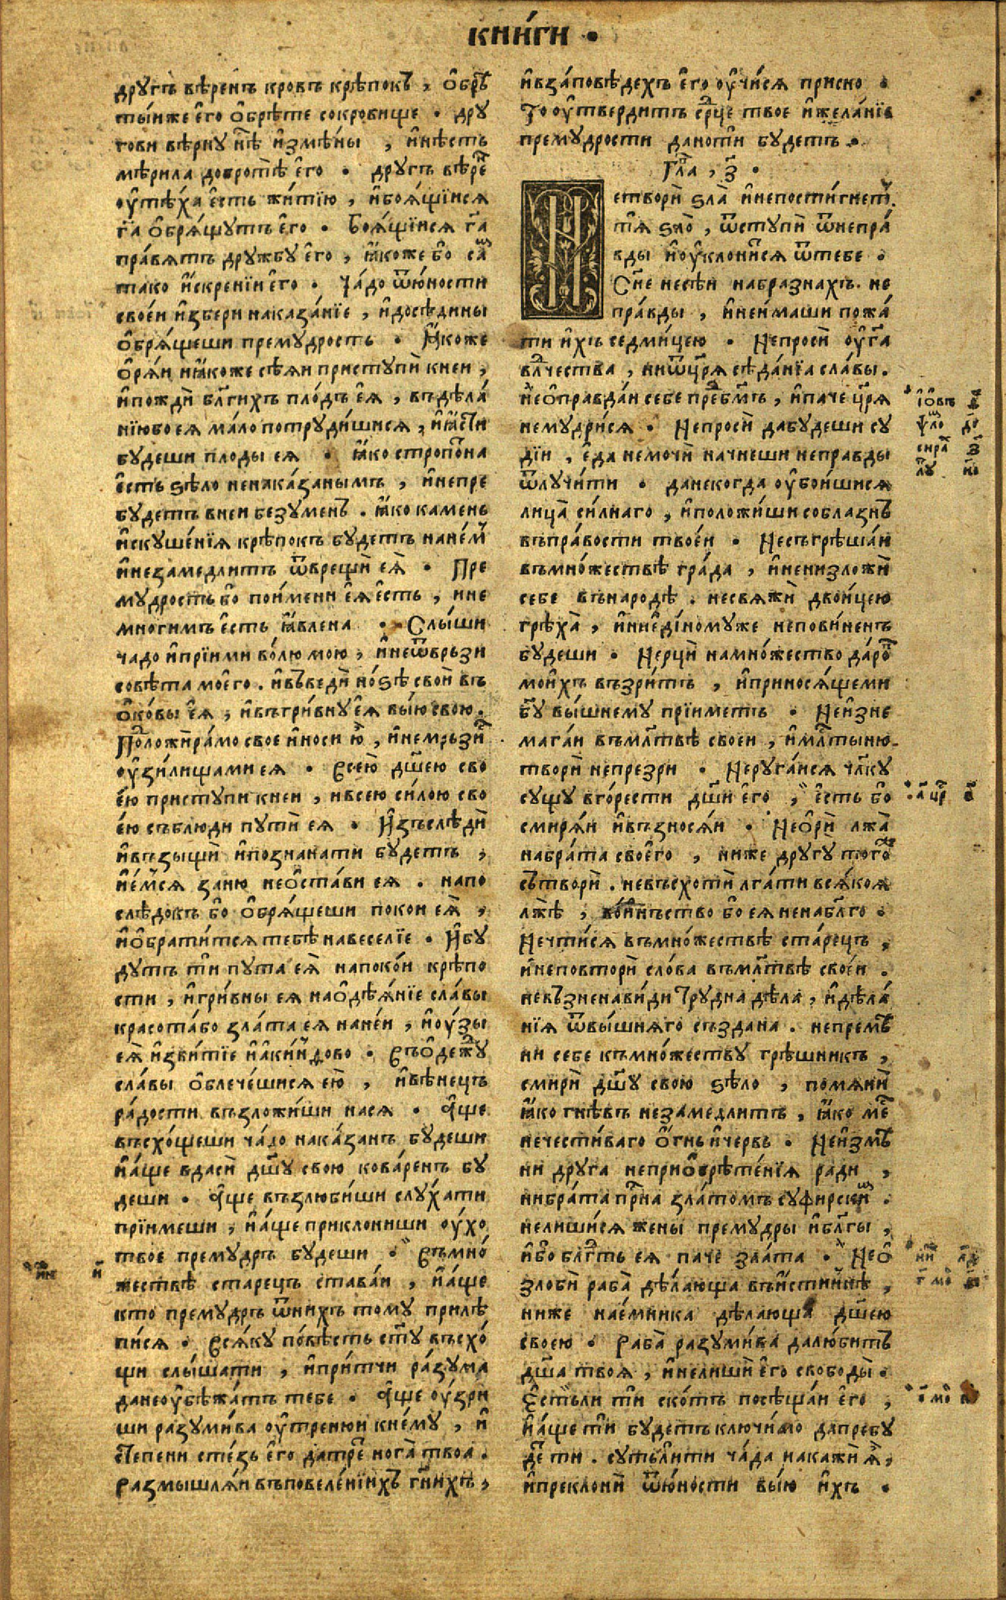 книги •
другъ вѣренъ кровъ крѣпокъ, ѡбрѣ
тыиже его ѡбрѣте сокровище • дру
гови вѣрну нѣ измѣны, инѣсть
мѣрила добротѣ его • другъ вѣре
утѣха есть житїю, ибоящїися
га обрящутъ его • Боящїися га
правятъ дружбу его, ꙗкоже бо са
тако искренїи его • Чадо ѿюности
своеи избери наказанїе, идосѣдины
обрящеши премудрость • Ꙗкоже
оряи иꙗкоже сѣяи приступи кнеи,
ипожди благихъ плодъ ея, вдѣла
нїибо ея мало потрудишися, иꙗсти
будеши плоды ея • Ꙗко стропотна
есть ѕѣло ненаказанымъ, инепре
будетъ внеи безуменъ. ꙗко камень
искушенїя крѣпокъ будетъ нанемъ
инезамедлитъ ѿврещи ея • Пре
мудрость бо поимени ея есть, ине
многимъ есть ꙗвлена • Слыши
чадо иприими волю мою, инеѿвръзи
совѣта моего. ивъведи ноѕѣ свои въ
оковы ея, ивъгривну ея выю свою.
Положи рамо свое иноси ю, инемръзи
узилищами ея • Всею дшею сво
ею приступи кнеи, ивсею силою сво
ею съблюди пути ея • Изъслѣди
ивъзыщи ипознанати будетъ,
иемся заню неостави ея. напо
слѣдокъ бо обрящеши покои ея,
иобратится тебѣ навеселїе • Ибу
дутъ ти пута ея напокои крѣпо
сти, игривны ея наодѣянїе славы
красотабо злата ея нанеи, иоузы
ея извитїе иакинѳово • Въодежу
славы облечешися ею, ивѣнецъ
радости възложиши нася • Аще
въсхощеши чадо наказанъ будеши
иаще вдаси дшу свою коваренъ бу
деши • Аще възлюбиши слухати
прїимеши, иаще приклониши ухо
твое премудръ будеши • Въмно
жествѣ старецъ ставаи, иаще
кто премудръ ѿнихъ тому прилѣ
пися • Всяку повѣсть сту въсхо
щи слышати, ипритчи разума
данеоубѣжатъ тебе • Аще узри
ши разумива утренюи кнему, и
степени стезь его датре нога твоа.
Размышляи въповеленїихъ гнихъ,
ивзаповѣдехъ его учися присно •
То утвердитъ срце твое ижеланїѥ
премудрости данотги будетъ •
Гла, з •
Нетвори зла инепостигнет
тя зло, ѿступи ѿнепра
вды иуклонися ѿтебе •
Сне несѣи набразнахъ не
правды, инеимаши пожа
ти ихъ седмицею • Непроси уга
влчества, ниѿцря сѣданїа славы.
Неоправдаи себе предбмъ, ипаче цря
немудрися • Непроси дабудеши су
дїи, еда немочи начнеши неправды
ѿлучити • данекогда убоишися
лица силнаго, иположиши соблазнъ
въправости твоеи • Несъгрѣшаи
въмножествѣ града, инеизложи
себе въ народѣ. несвяжи двоицею
грѣха, инивединомуже неповиненъ
будеши • Нерци намножество даро
моихъ възритъ, иприносящеми
бу вышнему прїиметъ • Неизне
магаи въмлтвѣ своеи, имлтыню
твори непрезри • Неругаися члку
сущу вгорести дши его, есть бо
смиряи ивъзносяи • Неори лжа
набрата своего, ниже другу того
сътвори. невъсхоти лгати всякоя
лжѣ, воинъство бо ея ненаблго •
Нечтися въмножествѣ старецъ,
инеповтори слова въмлтвѣ своеи.
невъзненавиди трудна дѣла, идѣла
нїя ѿвышняго създана. непремѣ
ни себе къмножеству грѣшникъ,
смири дшу свою ѕѣло, помяни
ꙗко гнѣвъ незамедлитъ, ꙗко ме
нечестиваго огнь ичервь • Неизмѣ
ни друга неприобрѣтенїя ради,
нибрата присна златомъ суфирски.
нелишися жены премудры иблгы,
ибо блгть ея паче злата • Нео
злоби раба дѣлающа въистиннѣ,
ниже наемника дѣлающа дшею
своею • Раба разумива далюбитъ
дша твоя, инелиши его свободы.
Естьли ти скотъ посѣщаи его,
иаще ти будетъ ключимо дапребу
де ти. сутьлити чада накажи я,
ипреклони ѿюности выю ихъ •